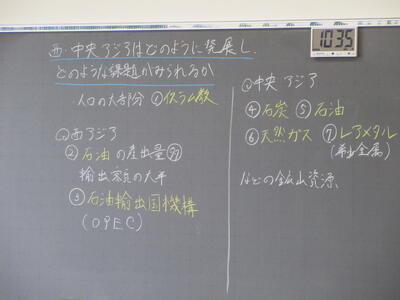 西・中央アジアはどのように発展し、
どのような課題がみられるか
人口の大部分 ①イスラム教
◎西アジア
② 石油 の産出量 多
輸出家額の大半
③ 石油輸出国機構
(OPEC)
10:35
◎中央アジア
④石炭 ⑤石油
⑥天然ガス ⑦レアメタル
(希少金属)
などの鉱山資源